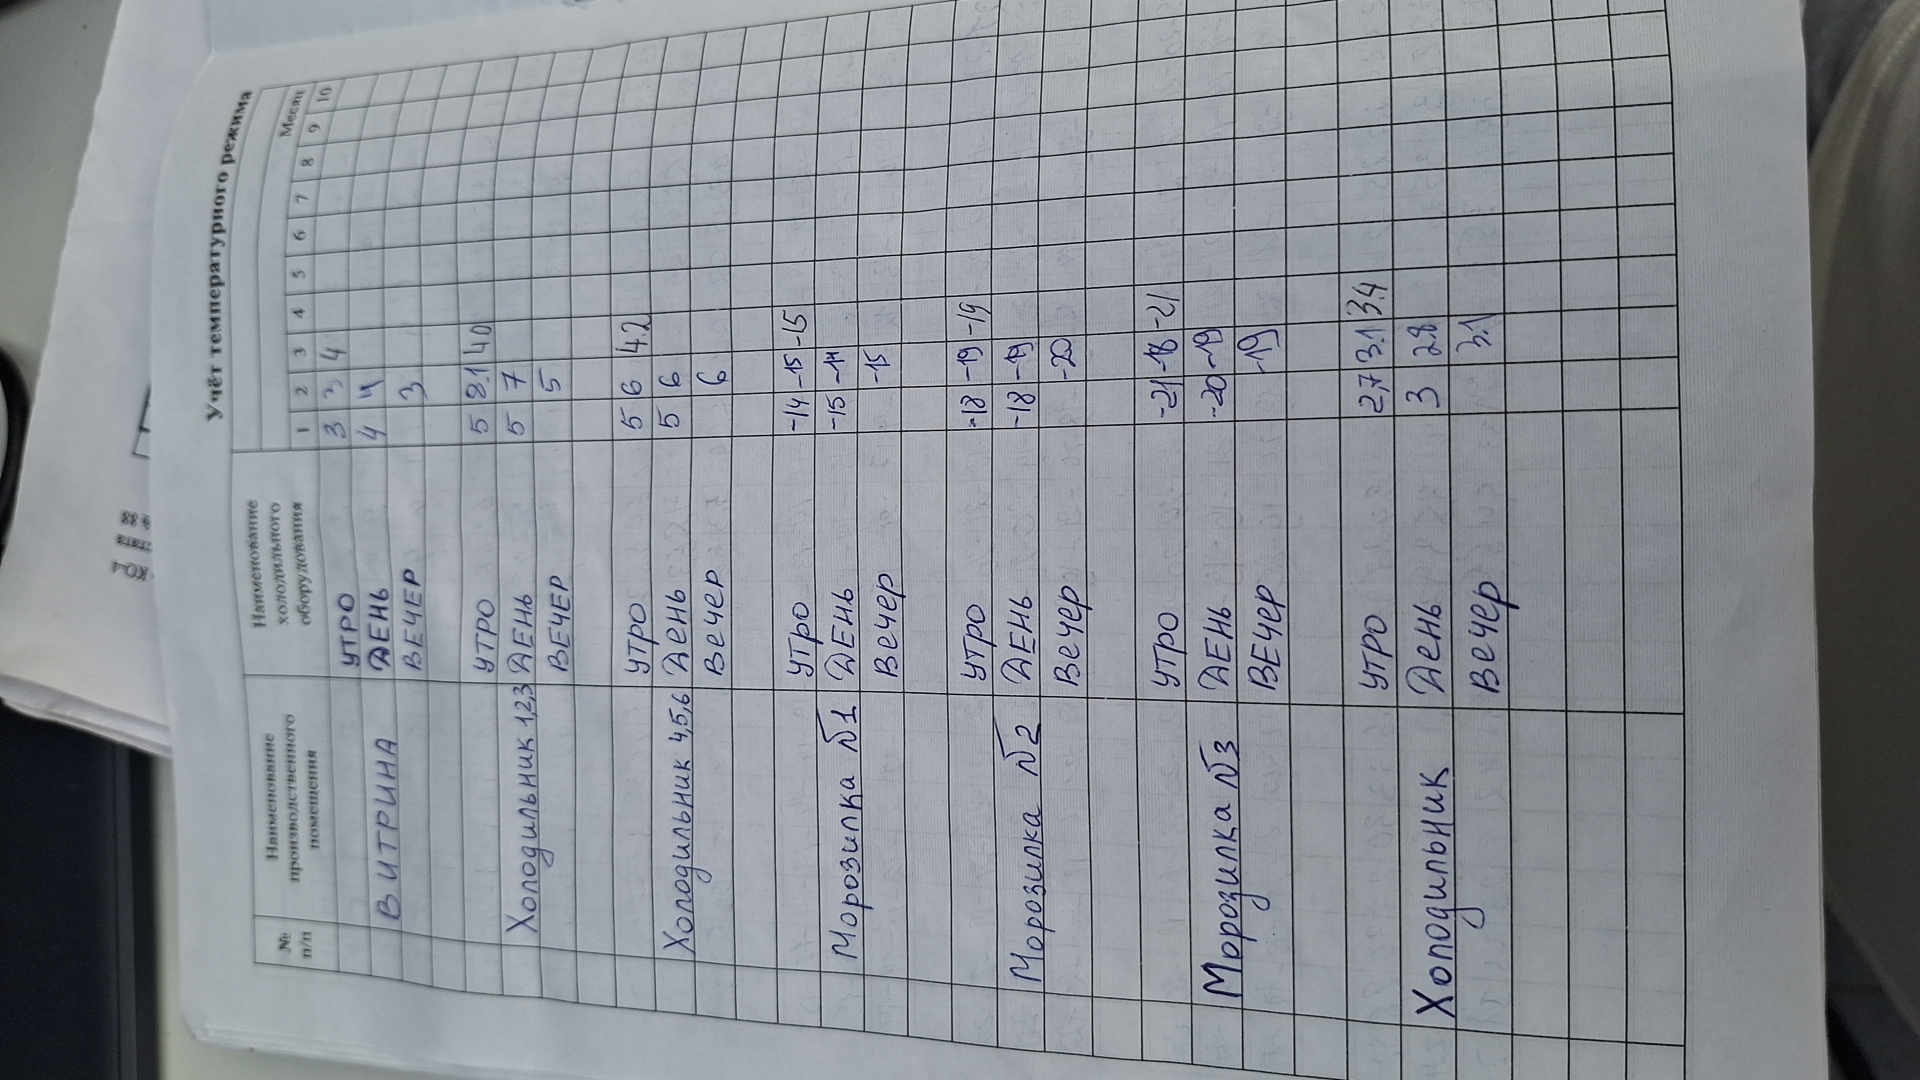 Учёт температурного режима
№ п/п Наименование производственного помещения Наименование холодильного оборудования Месяц
1 2 3 4 5 6 7 8 9 10
УТРО 3 3 4
ВИТРИНА ДЕНЬ 4 4
ВЕЧЕР 3
УТРО 5 8.1 4.0
Холодильник 1,2,3 ДЕНЬ 5 7
ВЕЧЕР 5
УТРО 5 6 4.2
Холодильник 4,5,6 ДЕНЬ 5 6
Вечер 6
УТРО -14 -15 -15
Морозилка №1 ДЕНЬ -15 -14
Вечер -15
УТРО -18 -19 -19
Морозилка №2 ДЕНЬ -18 -19
Вечер -20
УТРО -21 -18 -21
Морозилка №3 ДЕНЬ -20 -19
ВЕЧЕР -19
УТРО 2,7 3.1 3.4
Холодильник ДЕНЬ 3 2.8
Вечер 3.1